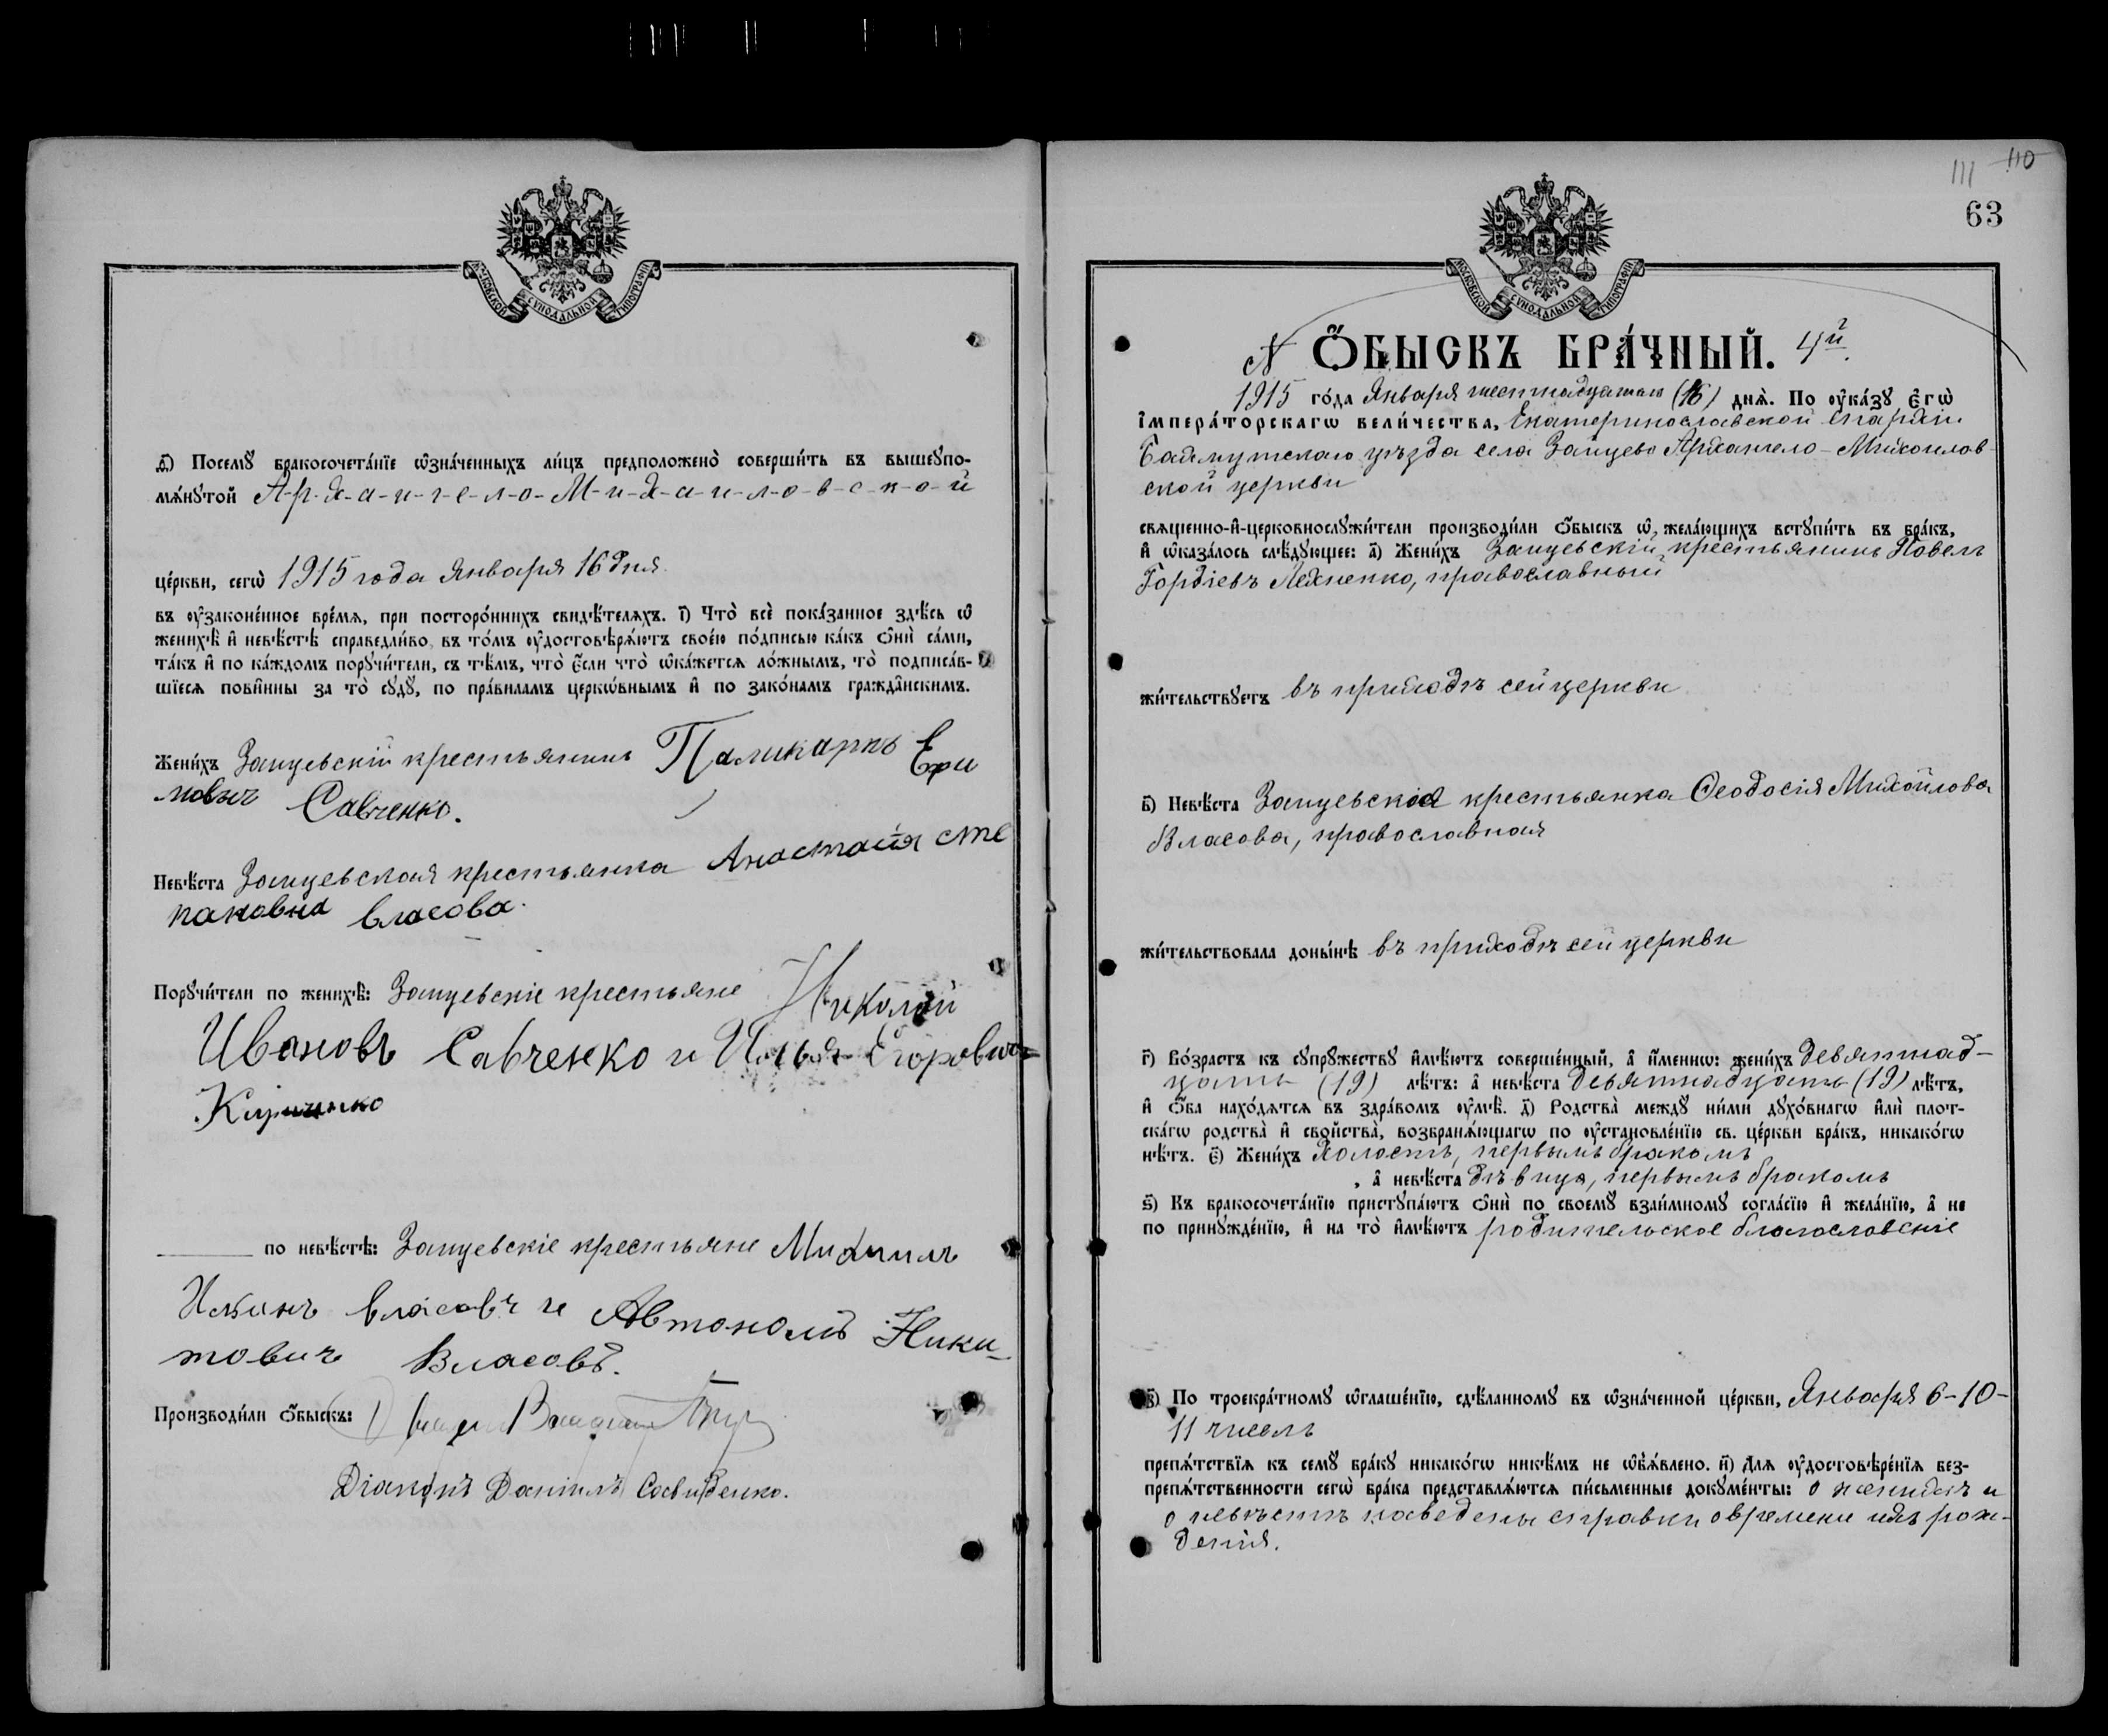 МОСКОВСКОЙ СѴНОДАЛЬНОЙ ТИПОГРАФІИ
ѳ҃) Посемꙋ̀ бракосочета́нїе ѡ҆зна́ченныхъ ли́цъ предположено̀ соверши́ть въ вышеꙋпо-
мѧ́нꙋтой А-р-х-а-н-г-е-л-о-М-и-х-а-и-л-о-в-с-к-о-й
це́ркви, сегѡ̀ 1915 года Января 16 дня
въ ᲂу҆законе́нное вре́мѧ, при посторо́ннихъ свидѣ́телѧхъ. і҃) Что̀ всѐ пока́занное здѣ́сь ѡ҆
женихѣ̀ и҆ невѣ́стѣ справедли́во, въ то́мъ ᲂу҆достовѣрѧ́ютъ свое́ю по́дписью ка́къ ѻ҆нѝ са́ми,
та́къ и҆ по ка́ждомъ порꙋчи́тели, съ тѣ́мъ, что̀ є҆́сли что̀ ѡ҆ка́жетсѧ ло́жнымъ, то̀ подписа́в-
шїесѧ пови́нны за то̀ сꙋдꙋ̀, по пра́виламъ церкѡ́внымъ и҆ по зако́намъ гражда̑нскимъ.
Жени́хъ Зайцевскій крестьянинъ Паликарпъ Ефи
мовъ Савченко.
Невѣ́ста Зайцевская крестьянка Анастасія Сте
пановна Власова.
Порꙋчи́тели по женихѣ̀: Зайцевскіе крестьяне Николай
Ивановъ Савченко и Илья Егоровичъ
Кириченко
по невѣ́стѣ: Зайцевскіе крестьяне Михаилъ
Ильинъ Власовъ и Автономъ Ники-
товичъ Власовъ.
Производи́ли ѻ҆́быскъ:
Діаконъ Даніилъ
111 110
63
МОСКОВСКОЙ СѴНОДАЛЬНОЙ ТИПОГРАФІИ
N Ѻ҆́БЫСКЪ БРА́ЧНЫЙ. 4й
1915 го́да Января шестнадцатаго (16) днѧ̀. По ᲂу҆ка́зꙋ Є҆гѡ̀
І҆мпера́торскагѡ вели́чества, Екатеринославской епархіи
Бахмутскаго уѣзда села Зайцево Архангело-Михаилов-
ской церкви
свѧщенно-и҆-церковнослꙋжи́тели производи́ли ѻ҆́быскъ ѡ҆ жела́ющихъ встꙋпи́ть въ бра́къ,
и҆ ѡ҆каза́лось слѣ́дꙋющее: а҃) Жени́хъ Зайцевскій крестьянинъ Павелъ
Гордіевъ Лехненко, православный
жи́тельствꙋетъ въ приходѣ сей церкви
в҃) Невѣ́ста Зайцевская крестьянка Ѳеодосія Михайлова
Власова, православная
жи́тельствовала доны́нѣ въ приходѣ сей церкви
г҃) Во́зрастъ къ сꙋпрꙋ́жествꙋ и҆мѣ́ютъ соверше́нный, а҆ и҆́меннѡ: жени́хъ девятнад-
цать (19) лѣ́тъ: а҆ невѣ́ста девятнадцать (19) лѣ́тъ,
и҆ ѻ҆́ба нахо́дѧтсѧ въ здра́вомъ ᲂу҆мѣ̀. д҃) Родства̀ междꙋ̀ ни́ми дꙋхо́внагѡ и҆лѝ плот-
ска́гѡ родства̀ и҆ сво́йства, возбранѧ́ющагѡ по ᲂу҆становле́нїю св. це́ркви бра́къ, никако́гѡ
нѣ́тъ. є҃) Жени́хъ холостъ, первымъ бракомъ
, а҆ невѣ́ста дѣвица, первымъ бракомъ
ѕ҃) Къ бракосочета́нїю пристꙋпа́ютъ ѻ҆нѝ по своемꙋ̀ взаи́мномꙋ согла́сїю и҆ жела́нїю, а҆ не
по принꙋжде́нїю, и҆ на то̀ и҆мѣ́ютъ родительское благословеніе
з҃) По троекра́тномꙋ ѡ҆глаше́нїю, сдѣ́ланномꙋ въ ѡ҆зна́ченной це́ркви, Января 6-10-
11 чиселъ
препѧ́тствїѧ къ семꙋ̀ бра́кꙋ никако́гѡ никѣ́мъ не ѡ҆б̾ѧ́влено. и҃) Длѧ ᲂу҆достовѣре́нїѧ без-
препѧ́тственности сегѡ̀ бра́ка представлѧ́ютсѧ пи́сьменные докꙋме́нты: о женихѣ и
о невѣстѣ наведены справки о времени ихъ рож-
денія.